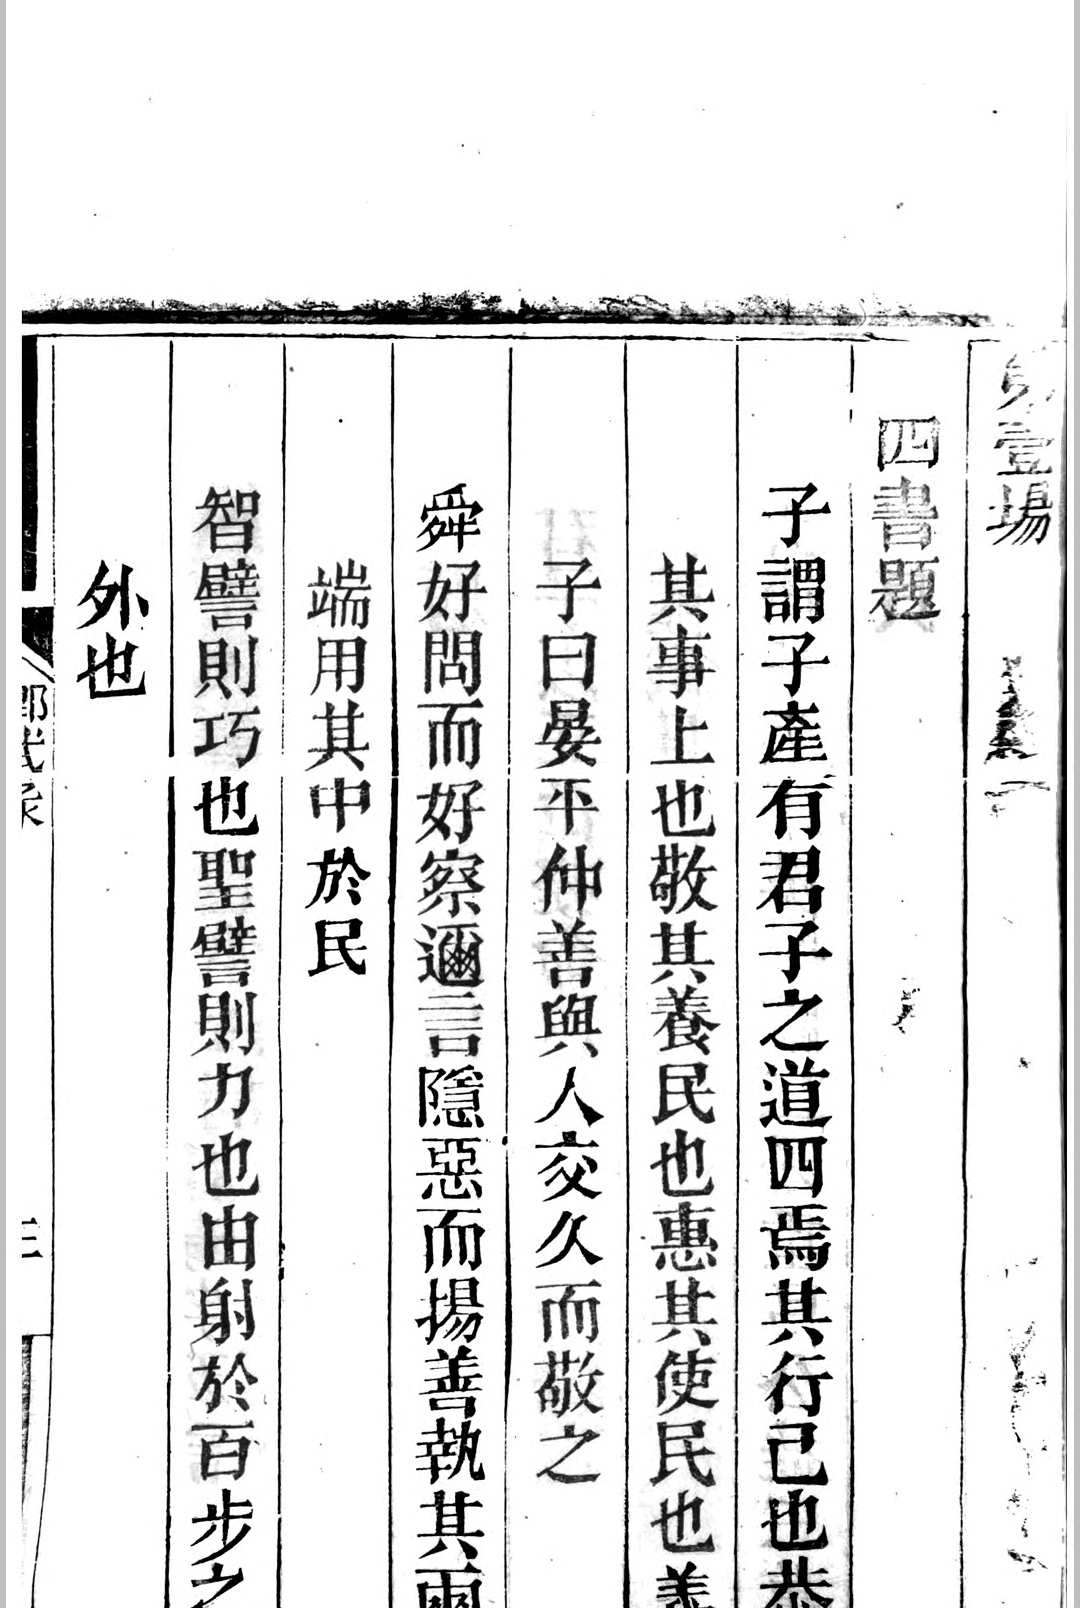 壹場
四書題
子謂子產有君子之道四焉其行己也恭
其事上也敬其養民也惠其使民也義
子曰晏平仲善與人交久而敬之
舜好問而好察邇言隱惡而揚善執其兩
端用其中於民
智譬則巧也聖譬則力也由射於百步之
外也
鄉試錄
三